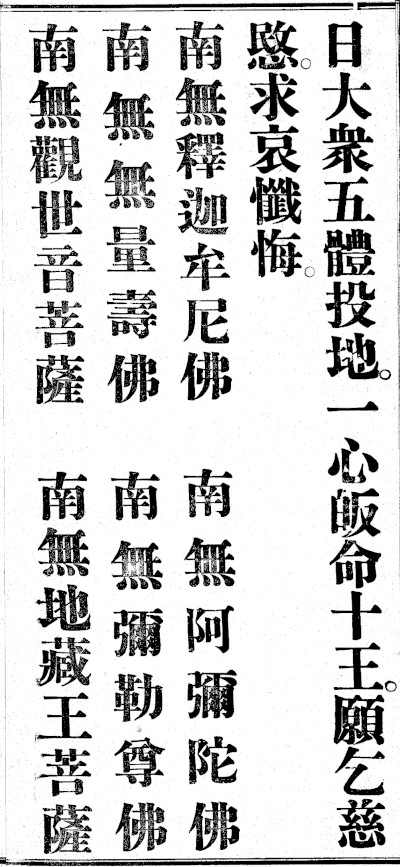 日大衆五體投地。一心皈命十王。願乞慈
愍。求哀懺悔。
南無釋迦牟尼佛　南無阿彌陀佛
南無無量壽佛　南無彌勒尊佛
南無觀世音菩薩　南無地藏王菩薩